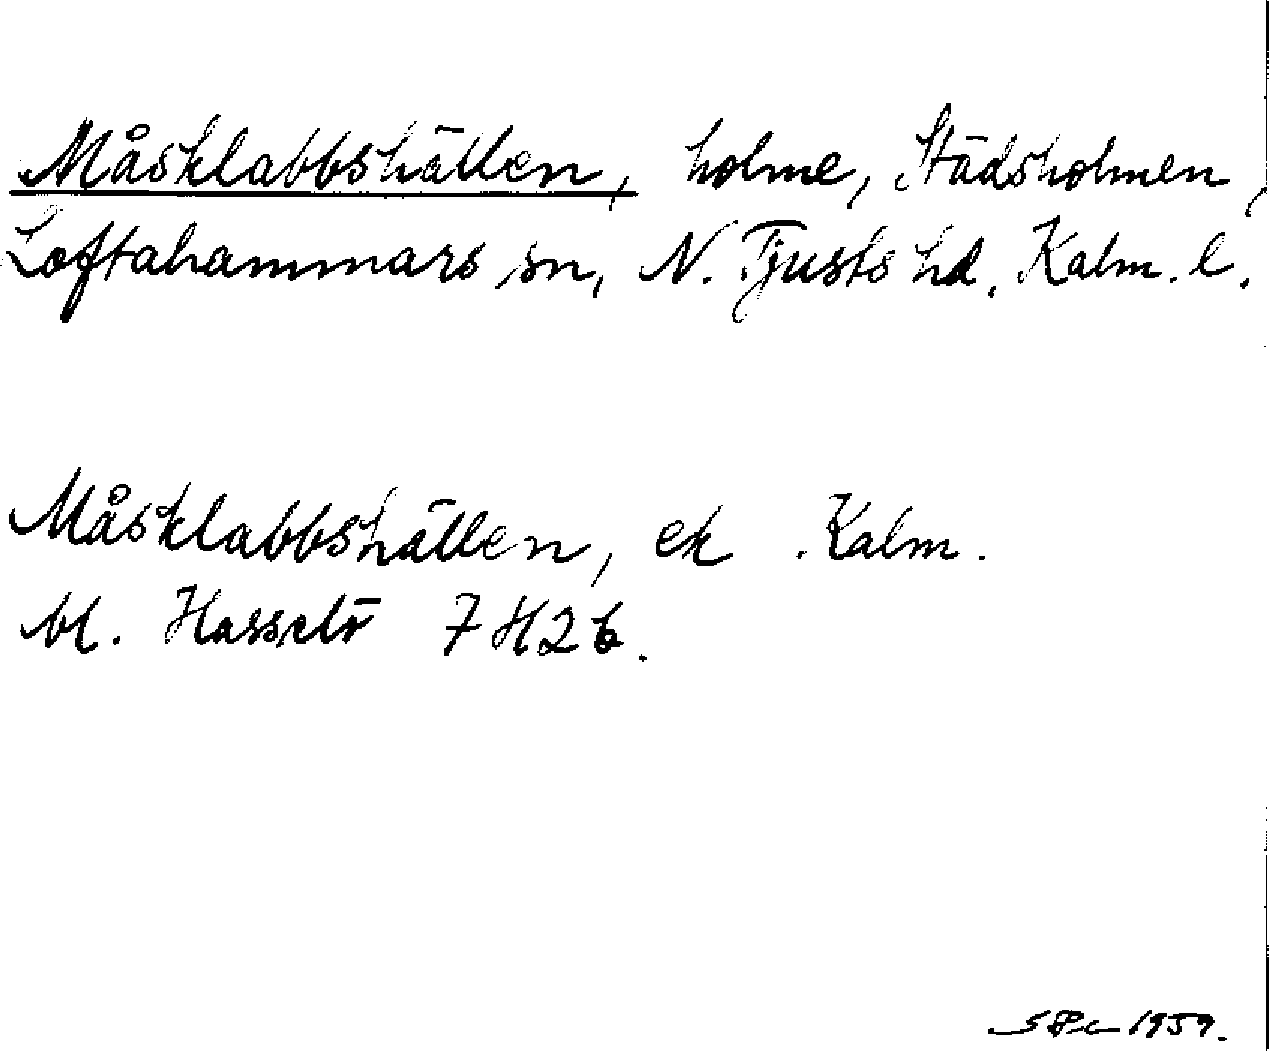 Måsklabbshällen, holme, Städsholmen,
Loftahammars sn, N. Tjusts hd, Kalm. l.
Måsklabbshällen, ek Kalm.
bl. Hasselö 7H2b.
1959.